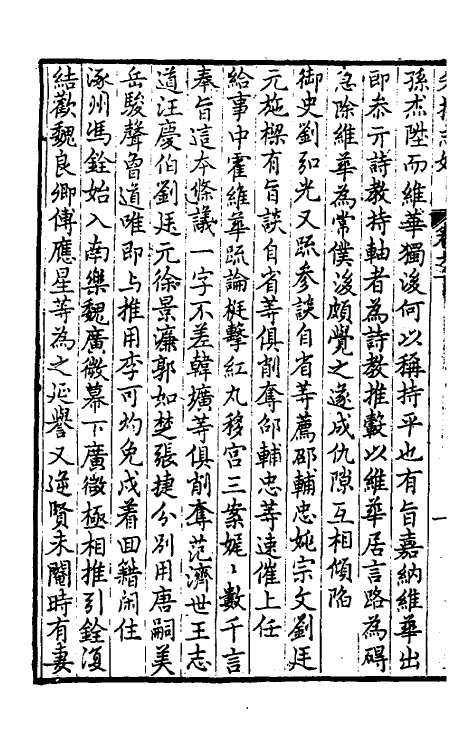 孫杰陞而維華獨後何以稱持平也有旨嘉納維華出
即恭亓詩教持軸者為詩教推轂以維華居言路為碍
急除維華為常僕後頗覺之遂成仇隙互相傾陷
御史劉弘光又疏參談自省等薦邵輔忠姚宗文劉廷
元施樑有旨談自省等俱削奪邵輔忠等速催上任
給事中霍維華疏論梃擊紅丸移宮三案娓〻數千言
奉旨這本條議一字不差韓擴等俱削奪范濟世王志
道汪慶伯劉廷元徐景濂郭如楚張捷分別用唐嗣美
岳駿聲曾道唯即与推用李可灼免戍着回籍闲住
涿州馮銓始入南樂魏廣微幕下廣微極相推引銓復
結歡魏良卿傅應星等為之延譽又逆賢未閹時有妻